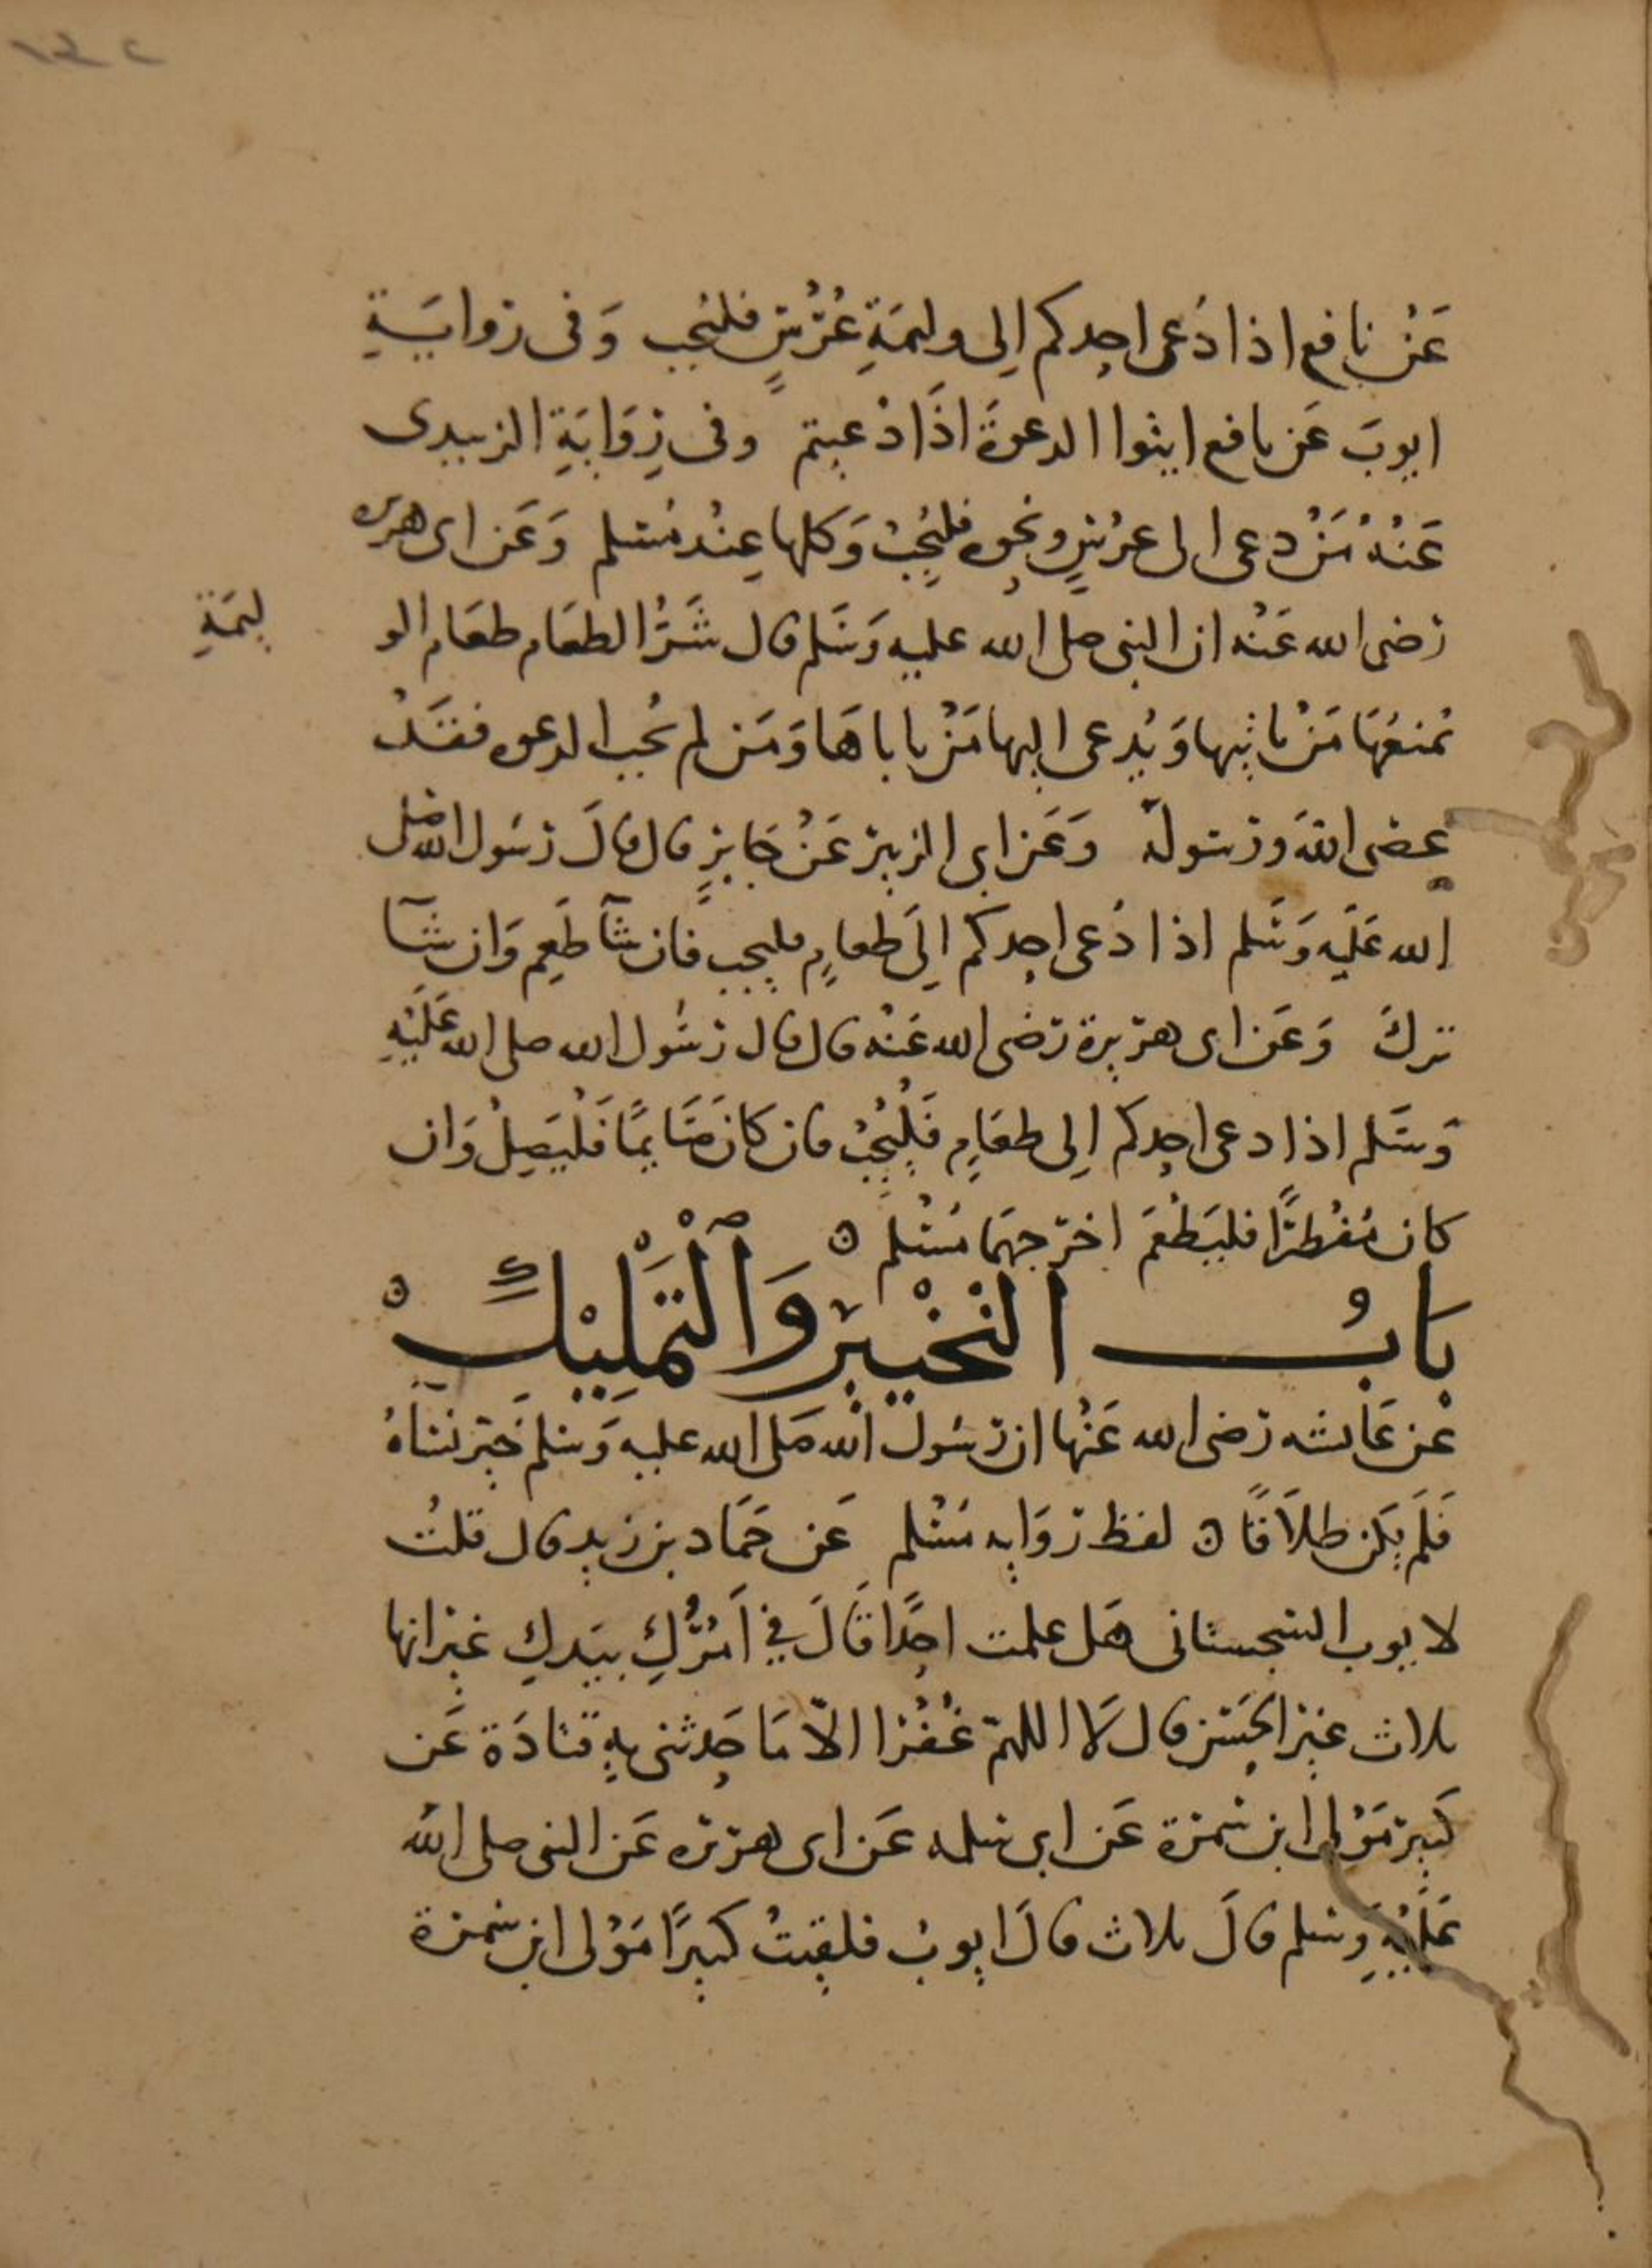 عَنْ نافع اذا دُعى احدكم اِلى وليمَةِ عُرْسٍ فليُجب وَفى رواَيَةِ
ايوبَ عَن نافع ايتوا الدعوةَ اذَا دُعيتم وفى رِوَايَةِ الزبيدى
عَنْهُ مَنْ دعى الى عرْسٍ ونحوِه فليُجِبْ وَكلها عِنْد مُسلم وَعَن ابى هريره
رضى الله عَنْه ان النبى صلى الله عليه وَسَلم قال شَرُّ الطعَام طعَام الو
ليمَةِ
يُمنعُهَا مَنْ ياتيها وَيُدعى اليها مَنْ ياباهَا وَمَن لم يُجب الدعوه فقَدْ
عصَى اللهَ ورسَولهُ وَعَن ابى الزبير عَنْ جَابرٍ قال قالَ رسُول الله صَلى
الله عَلَيه وَسَلم اذا دُعى احدكم اِلَى طعامٍ فليجب فان شآ طَعِم وَان شآ
تركَ وَعَن ابى هريرة رَضى الله عَنْه قال قال رسُول الله صلى الله عَلَيْهِ
وَسَلم اذا دعى احدكم اِلى طعَامٍ فَلْيُجِبْ فان كانَ صَايمًا فَلْيُصِلْ وَان
كان مُفْطرًا فليَطْعَمَ اخرجهمَا مُسْلم ه
بَابُ التَخْيِيْرِ وَالْتَمْلِيْكِ ه
عَن عَائشه رضى الله عَنْها ان رَسُول الله صَلى الله عليه وَسلم خَير نسَآهُ
فَلَم يكن طلَاقًا ه لفظ رَوَايه مُسْلم عَن حَمَاد بن زيدٍ قال قلتُ
لايوب السَجستانى هَل علمت احَدًا قَالَ فِي اَمْرُكِ بيَدكِ غير انها
ثلاث غير الحسَن قال لَا اللهمّ غفْرًا الاّ مَا حَدثنى بهِ قتادَة عَن
كَبير مَوْلى ابن سَمرة عَن ابى سلمه عَن ابى هريره عَن النبى صلى الله
عَلَيْهِ وسلم قالَ ثلاث قالَ ايوبُ فلقيتُ كبيرًا مَوْلى ابن سَمرة